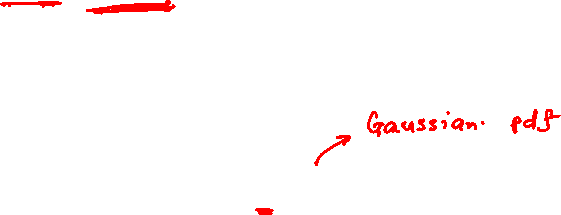 Gaussian. pdf